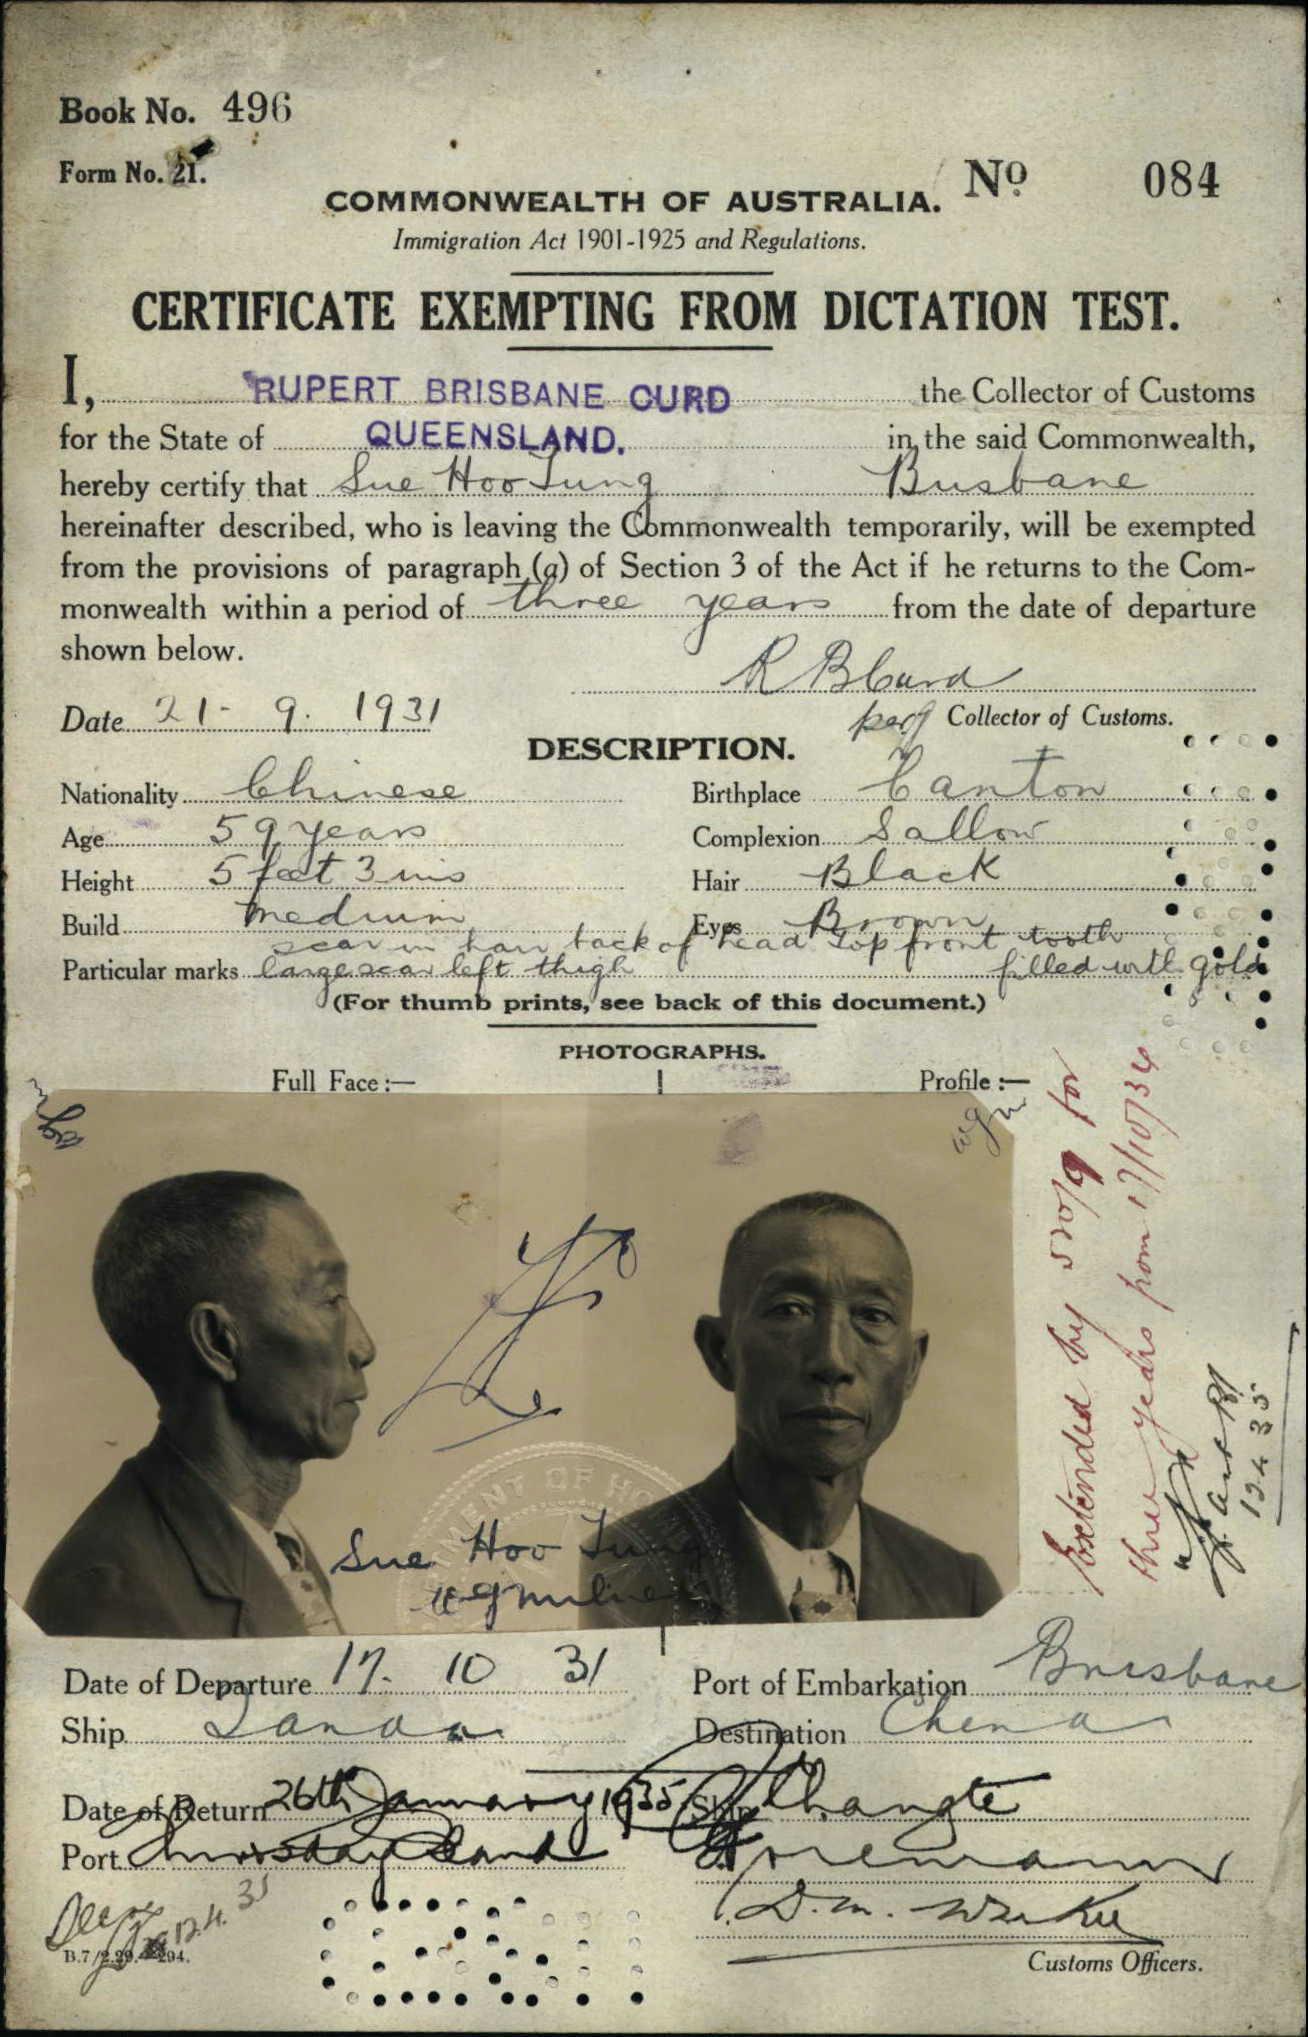 Book No. 496
Form No. 21.
No 084
COMMONWEALTH OF AUSTRALIA.
Immigration Act 1901-1925 and Regulations.
CERTIFICATE EXEMPTING FROM DICTATION TEST.
I, RUPERT BRISBANE CURD the Collector of Customs
for the State of QUEENSLAND. in the said Commonwealth,
hereby certify that Sue Hoo Tung Brisbane
hereinafter described, who is leaving the Commonwealth temporarily, will be exempted
from the provisions of paragraph (a) of Section 3 of the Act if he returns to the Com-
monwealth within a period of three years from the date of departure
shown below.
R B Curd
Date 21- 9. 1931
Collector of Customs.
DESCRIPTION.
Nationality Chinese Birthplace Canton
Age 59 years Complexion Sallow
Height 5 feet 3 ins Hair Black
Build medium Eyes Brown
scar in hair back of head Top front tooth
Particular marks large scar left thigh filled with gold
(For thumb prints, see back of this document.)
PHOTOGRAPHS.
Full Face :— Profile :—
Sue Hoo Tung
Extended by for
three years from 17/10/34
12.4.35
Date of Departure 17. 10 31 Port of Embarkation Brisbane
Ship Tanda Destination China
Date of Return 26th January 1935 Ship Changte
Port Thursday Island
12.4.35
Customs Officers.